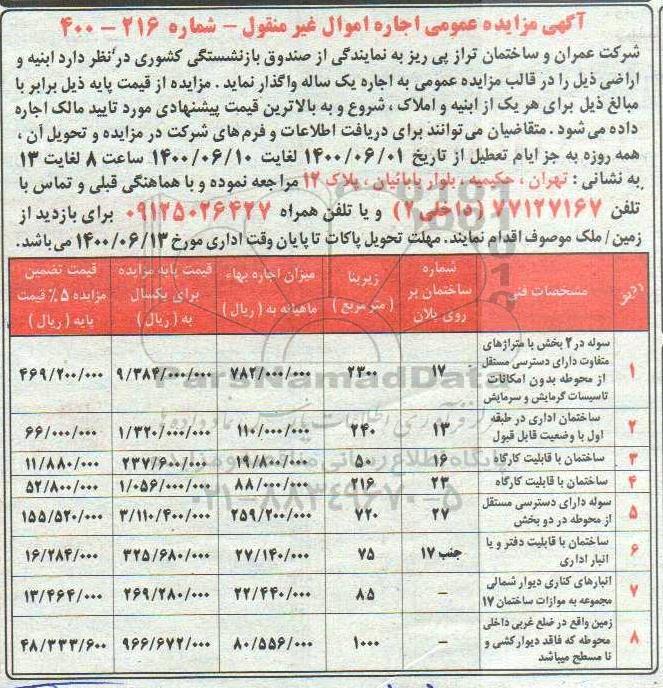 آگهی مزایده عمومی اجاره اموال غیر منقول - شماره ۲۱۶ - ۴۰۰
شرکت عمران و ساختمان تراز پی ریز به نمایندگی از صندوق بازنشستگی کشوری در نظر دارد ابنیه و
اراضی ذیل را در قالب مزایده عمومی به اجاره یک ساله واگذار نماید. مزایده از قیمت پایه ذیل برابر با
مبالغ ذیل برای هر یک از ابنیه و املاک، شروع و به بالاترین قیمت پیشنهادی مورد تایید مالک اجاره
داده می‌شود. متقاضیان می‌توانند برای دریافت اطلاعات و فرم های شرکت در مزایده و تحویل آن،
همه روزه به جز ایام تعطیل از تاریخ ۱۴۰۰/۰۶/۰۱ لغایت ۱۴۰۰/۰۶/۱۰ ساعت ۸ لغایت ۱۳
به نشانی: تهران، حکیمیه، بلوار بابائیان، پلاک ۱۲ مراجعه نموده و با هماهنگی قبلی و تماس با
تلفن ۷۷۱۲۷۱۶۷ (داخلی ۲) و یا تلفن همراه ۰۹۱۲۵۰۲۶۴۲۷ برای بازدید از
زمین / ملک موصوف اقدام نمایند. مهلت تحویل پاکات تا پایان وقت اداری مورخ ۱۴۰۰/۰۶/۱۳ می‌باشد.
ردیف مشخصات فنی شماره ساختمان بر روی پلان زیربنا (متر مربع) میزان اجاره بهاء ماهیانه به (ریال) قیمت پایه مزایده برای یکسال به (ریال) قیمت تضمین مزایده ۵٪ قیمت پایه (ریال)
۱ سوله در ۲ بخش با متراژهای متفاوت دارای دسترسی مستقل از محوطه بدون امکانات تاسیسات گرمایش و سرمایش ۱۷ ۲۳۰۰ ۷۸۲/۰۰۰/۰۰۰ ۹/۳۸۴/۰۰۰/۰۰۰ ۴۶۹/۲۰۰/۰۰۰
۲ ساختمان اداری در طبقه اول با وضعیت قابل قبول ۱۳ ۲۴۰ ۱۱۰/۰۰۰/۰۰۰ ۱/۳۲۰/۰۰۰/۰۰۰ ۶۶/۰۰۰/۰۰۰
۳ ساختمان با قابلیت کارگاه ۱۶ ۵۰ ۱۹/۸۰۰/۰۰۰ ۲۳۷/۶۰۰/۰۰۰ ۱۱/۸۸۰/۰۰۰
۴ ساختمان با قابلیت کارگاه ۲۳ ۲۱۶ ۸۸/۰۰۰/۰۰۰ ۱/۰۵۶/۰۰۰/۰۰۰ ۵۲/۸۰۰/۰۰۰
۵ سوله دارای دسترسی مستقل از محوطه در دو بخش ۲۷ ۷۲۰ ۲۵۹/۲۰۰/۰۰۰ ۳/۱۱۰/۴۰۰/۰۰۰ ۱۵۵/۵۲۰/۰۰۰
۶ ساختمان با قابلیت دفتر و یا انبار اداری جنب ۱۷ ۷۵ ۲۷/۱۴۰/۰۰۰ ۳۲۵/۶۸۰/۰۰۰ ۱۶/۲۸۴/۰۰۰
۷ انبارهای کناری دیوار شمالی مجموعه به موازات ساختمان ۱۷ - ۸۵ ۲۲/۴۴۰/۰۰۰ ۲۶۹/۲۸۰/۰۰۰ ۱۳/۴۶۴/۰۰۰
۸ زمین واقع در ضلع غربی داخلی محوطه که فاقد دیوارکشی و نا مسطح میباشد - ۱۰۰۰ ۸۰/۵۵۶/۰۰۰ ۹۶۶/۶۷۲/۰۰۰ ۴۸/۳۳۳/۶۰۰
ParsNamadData
۰۲۱-۸۸۳۴۹۶۷۰-۵